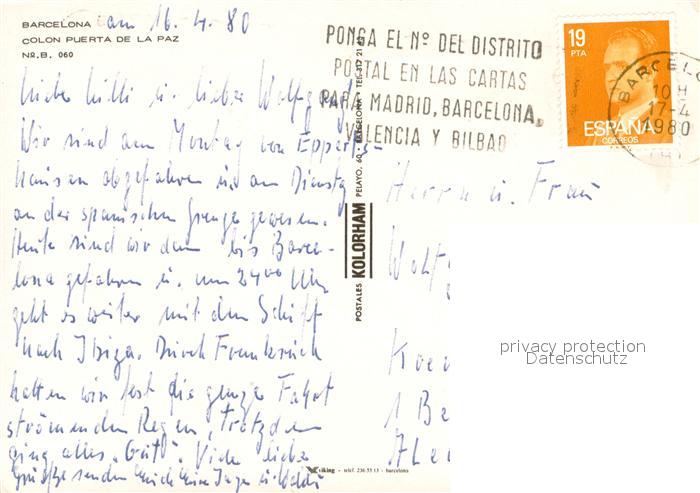 BARCELONA am 16.4.80
COLON PUERTA DE LA PAZ
Nº.B. 060
Liebe Willi u. lieber Wolfgang!
Wir sind am Montag von Epperts-
hausen abgefahren u. am Dienstag
an der spanischen Grenze gewesen.
Heute sind wir dann bis Barce-
lona gefahren u. um 24⁰⁰ Uhr
geht es weiter mit dem Schiff
nach Ibiza. Durch Frankreich
hatten wir fast die ganze Fahrt
strömenden Regen, trotzdem
ging alles "Gut". Viele liebe
Grüße senden
PONGA EL Nº DEL DISTRITO
POSTAL EN LAS CARTAS
PARA MADRID, BARCELONA,
VALENCIA Y BILBAO
19
PTA
ESPAÑA
CORREOS
BARCELO
10 H
17-4
1980
POSTALES KOLORHAM PELAYO, 60 BARCELONA TEL. 317 21
Herrn u. Frau
Wolf
Koe
1 Be
privacy protection
Datenschutz
viking - teléf. 236 55 13 - barcelona